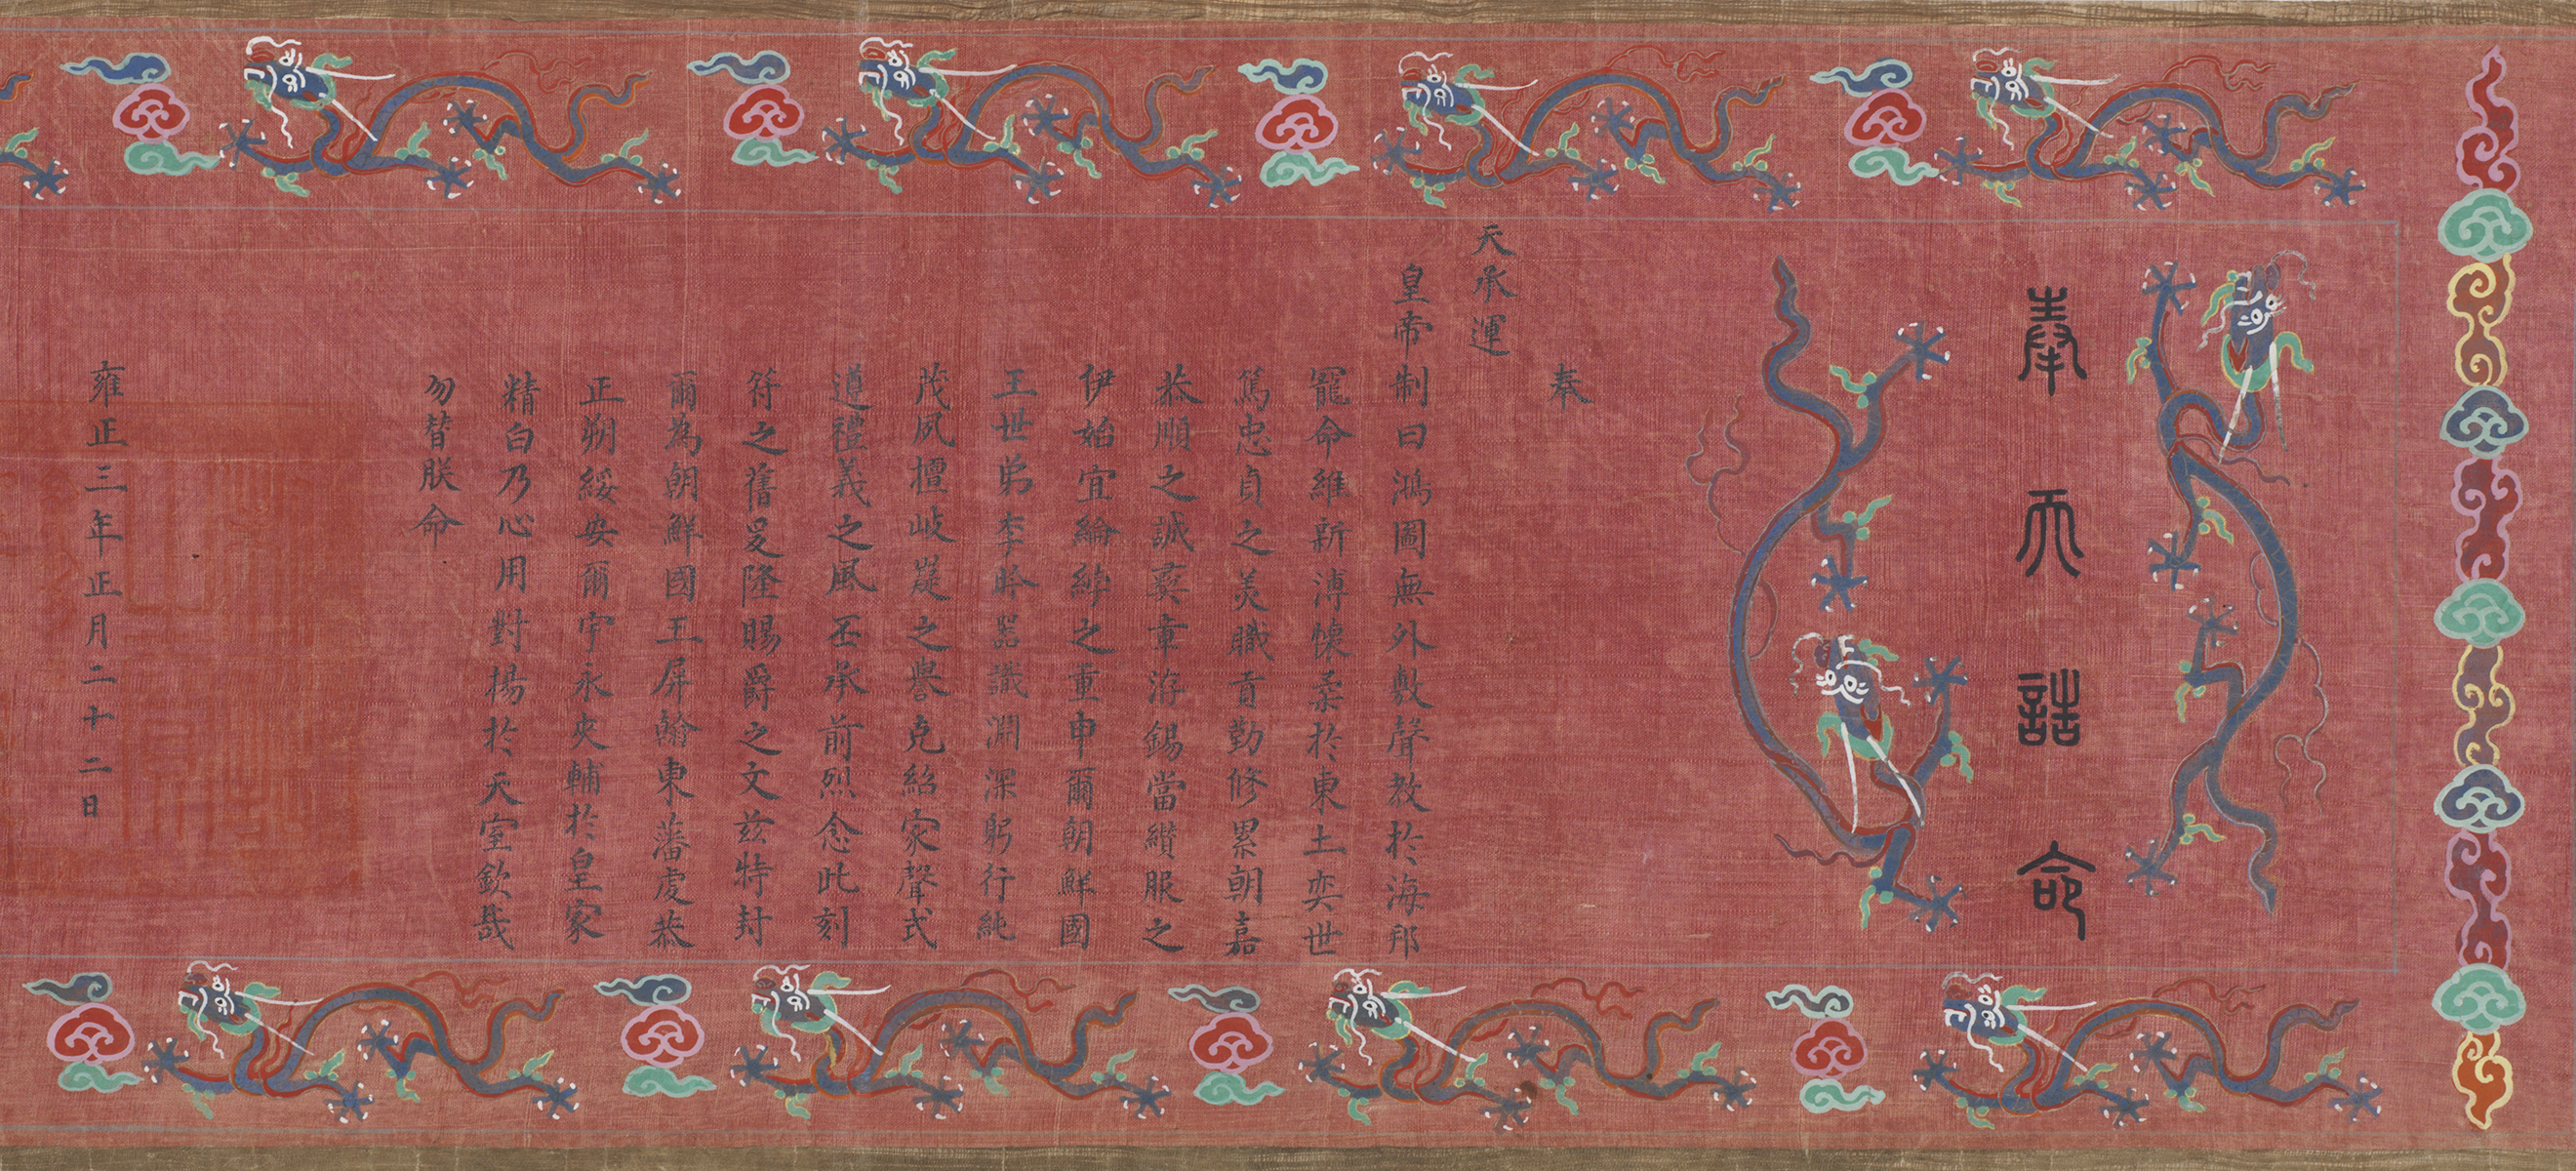 奉天誥命
奉
天承運
皇帝制曰鴻圖無外敷聲教於海邦
寵命維新溥懷柔於東土奕世
篤忠貞之美職貢勤修累朝嘉
恭順之誠彛章洊錫當纘服之
伊始宜綸綍之重申爾朝鮮國
王世弟李昑器識淵深躬行純
茂夙擅岐嶷之譽克紹家聲式
遵禮義之風丕承前烈念此剖
符之舊爰隆賜爵之文茲特封
爾為朝鮮國王屏翰東藩虔恭
正朔綏安爾宇永夾輔於皇家
精白乃心用對揚於天室欽哉
勿替朕命
雍正三年正月二十二日